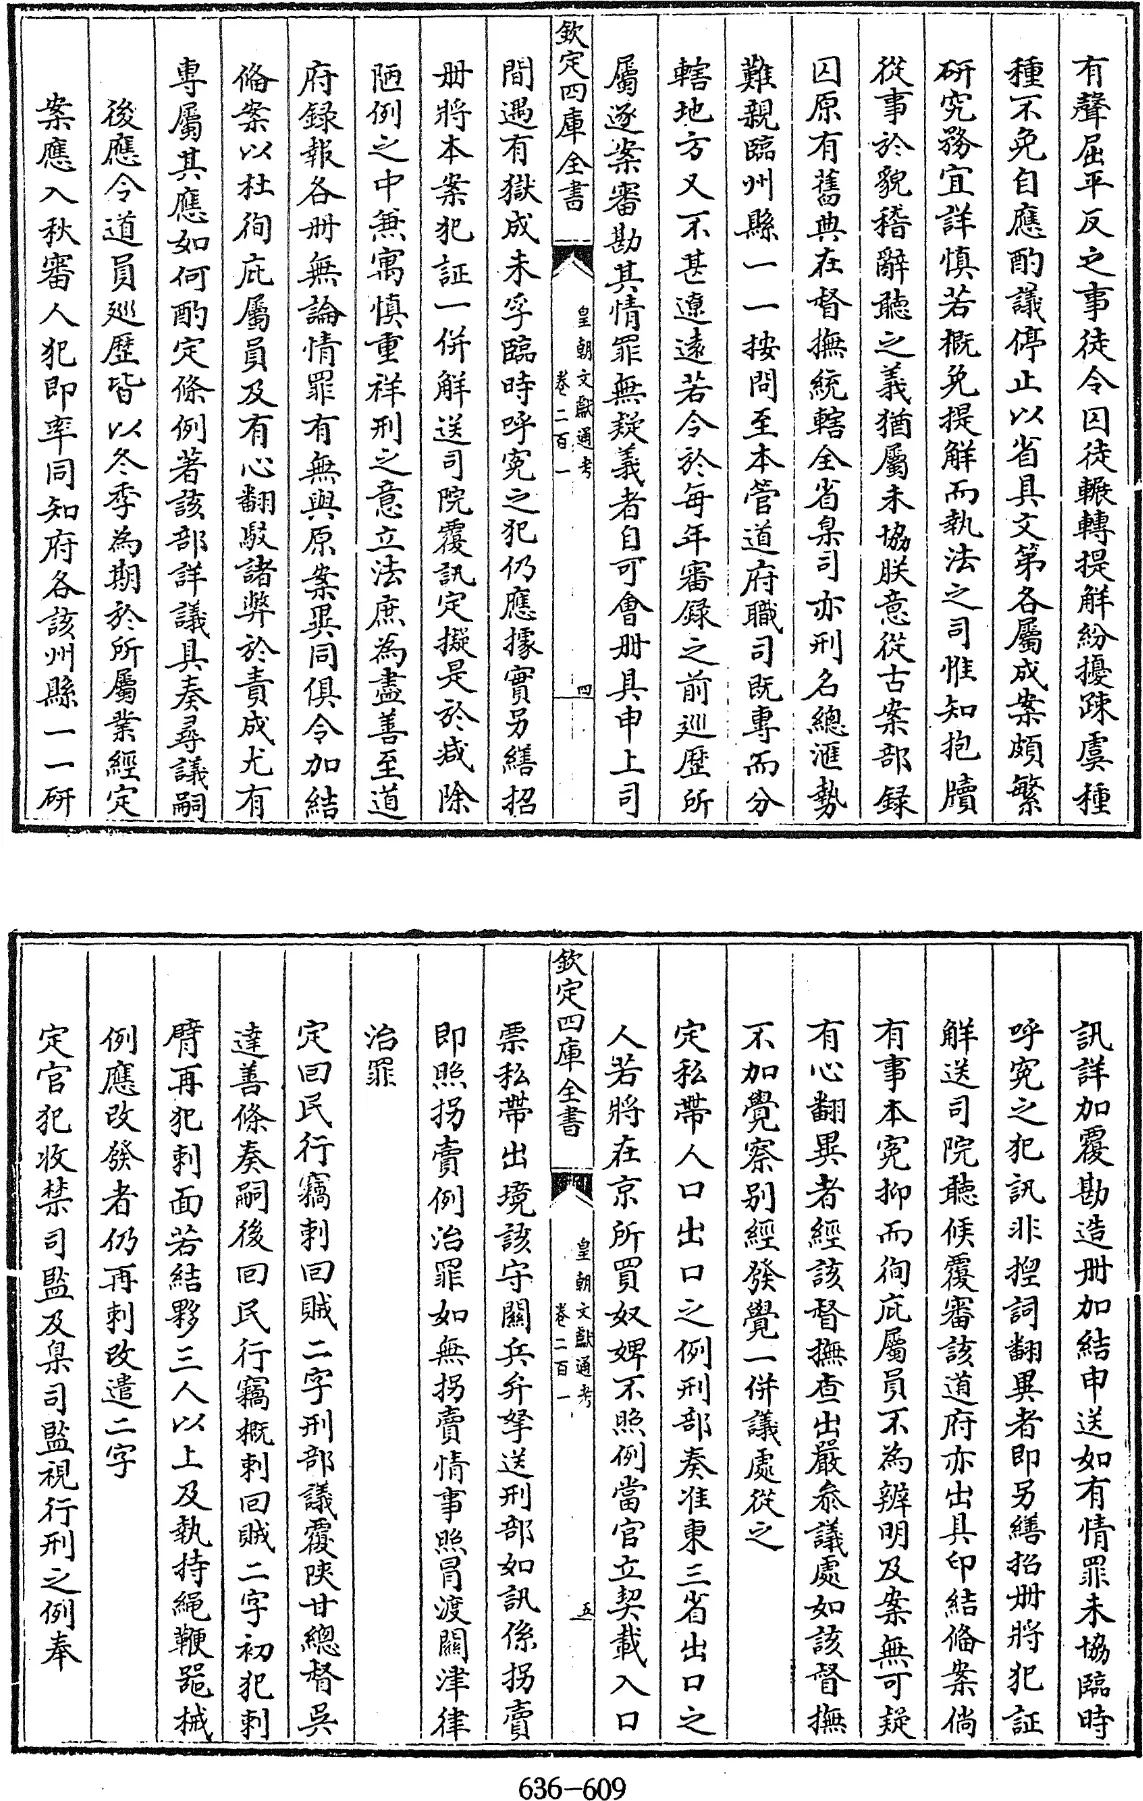 有聲屈平反之事徒令囚徒輾轉提解紛擾疎虞種
種不免自應酌議停止以省具文第各屬成案頗繁
研究務宜詳慎若概免提解而執法之司惟知抱牘
從事於貌稽辭聽之義猶屬未協朕意從古案部録
囚原有舊典在督撫統轄全省臬司亦刑名總滙勢
難親臨州縣一一按問至本管道府職司既專而分
轄地方又不甚遼遠若令於每年審録之前廵歴所
屬逐案審勘其情罪無疑義者自可會册具申上司
欽定四庫全書
皇朝文獻通考
卷二百一
四
間遇有獄成未孚臨時呼寃之犯仍應據實另繕招
册將本案犯証一併解送司院覆訊定擬是於裁除
陋例之中兼寓慎重祥刑之意立法庶為盡善至道
府録報各册無論情罪有無與原案異同俱令加結
偹案以杜徇庇屬員及有心翻駁諸弊於責成尤有
專屬其應如何酌定條例著該部詳議具奏尋議嗣
後應令道員廵歴皆以冬季為期於所屬業經定
案應入秋審人犯即率同知府各該州縣一一研
訊詳加覆勘造册加結申送如有情罪未協臨時
呼寃之犯訊非揑詞翻異者即另繕招册將犯証
解送司院聽候覆審該道府亦出具印結偹案倘
有事本寃抑而徇庇屬員不為辨明及案無可疑
有心翻異者經該督撫查出嚴叅議處如該督撫
不加覺察别經發覺一併議處從之
定私帶人口出口之例刑部奏准東三省出口之
人若將在京所買奴婢不照例當官立契載入口
欽定四庫全書
皇朝文獻通考
卷二百一
五
票私帶出境該守關兵弁拏送刑部如訊係拐賣
即照拐賣例治罪如無拐賣情事照冒渡關津律
治罪
定回民行竊刺回賊二字刑部議覆陜甘總督吳
達善條奏嗣後回民行竊概刺回賊二字初犯刺
臂再犯刺面若結夥三人以上及執持繩鞭噐械
例應改發者仍再刺改遣二字
定官犯收禁司監及臬司監視行刑之例奉
636-609